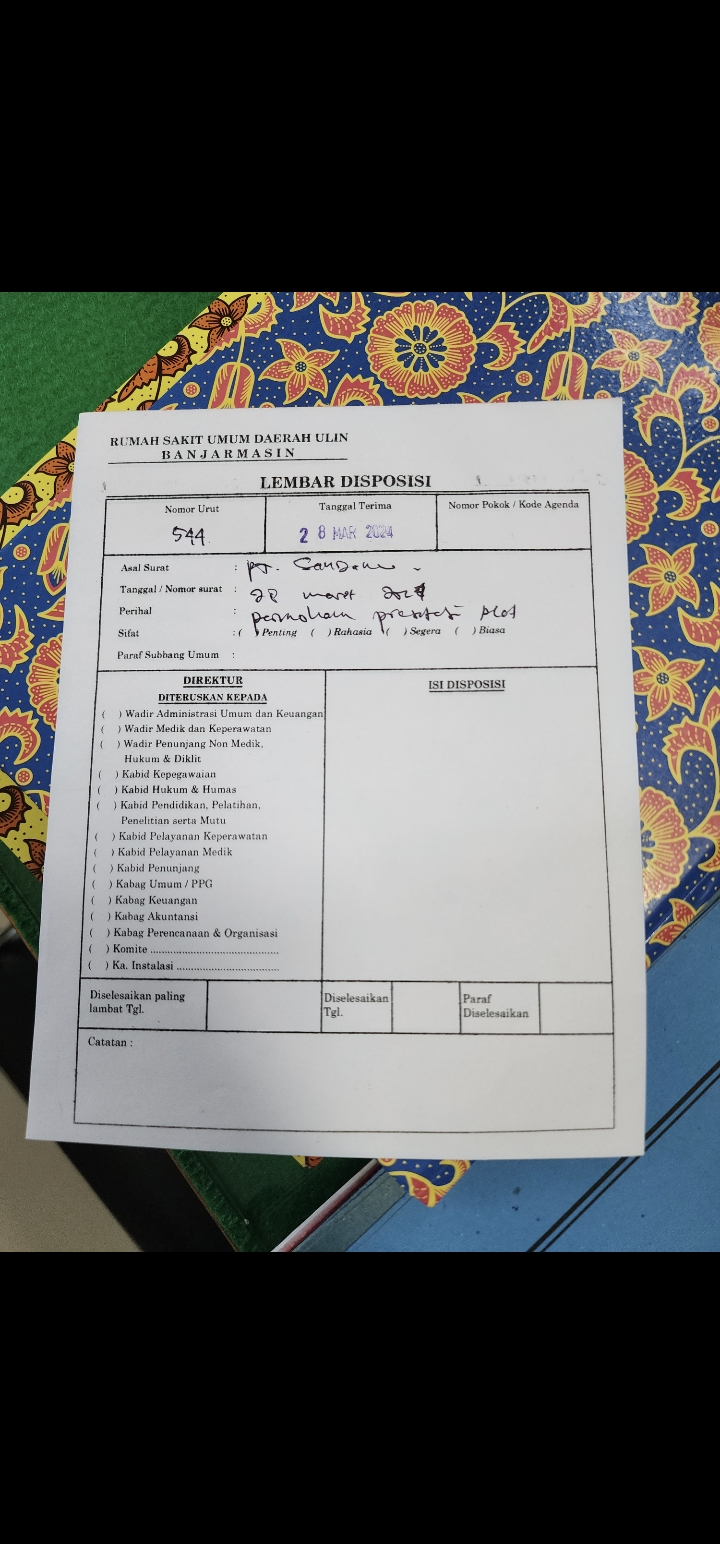 RUMAH SAKIT UMUM DAERAH ULIN
BANJARMASIN
LEMBAR DISPOSISI
Nomor Urut
544
Tanggal Terima
28 MAR 2024
Nomor Pokok / Kode Agenda
Asal Surat : PT.
Tanggal / Nomor surat : 28 maret 2024
Perihal :
Sifat : ( ) Penting ( ) Rahasia ( ) Segera ( ) Biasa
Paraf Subbang Umum :
DIREKTUR
DITERUSKAN KEPADA
( ) Wadir Administrasi Umum dan Keuangan
( ) Wadir Medik dan Keperawatan
( ) Wadir Penunjang Non Medik,
Hukum & Diklit
( ) Kabid Kepegawaian
( ) Kabid Hukum & Humas
( ) Kabid Pendidikan, Pelatihan,
Penelitian serta Mutu
( ) Kabid Pelayanan Keperawatan
( ) Kabid Pelayanan Medik
( ) Kabid Penunjang
( ) Kabag Umum / PPG
( ) Kabag Keuangan
( ) Kabag Akuntansi
( ) Kabag Perencanaan & Organisasi
( ) Komite ..........................................
( ) Ka. Instalasi ..................................
ISI DISPOSISI
Diselesaikan paling
lambat Tgl.
Diselesaikan
Tgl.
Paraf
Diselesaikan
Catatan :